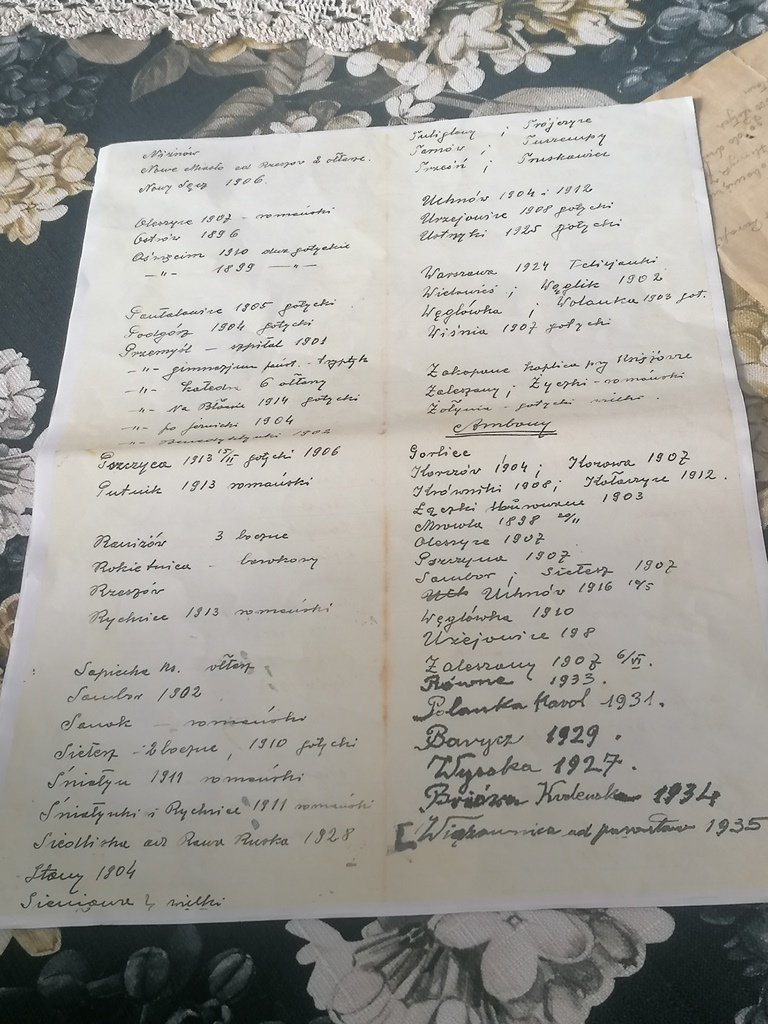 Nizinów
Nowe Miasto ad Rzeszów 2 ołtarze.
Nowy Sącz 1906.
Oleszyce 1907 - romański
Ostrów 1896
Oświęcim 1910 dwa gotyckie
— „ — 1899 — „ —
Pantalowice 1905 gotycki
Podgórz 1904 gotycki
Przemyśl — szpital 1901
- „ - gimnazjum państ. - tryptyk
- „ - katedra 6 ołtarzy
- „ - Na Błoniu 1914 gotycki
- „ - po jezuicki 1904
- „ - Benedyktynki 1902
Pszczyca 1913 15/IV gotycki 1906
Putnik 1913 romański
Raniżów 3 boczne
Rokietnica - barokowy
Rzeszów
Rychcice 1913 romański
Sapiecha Ks. ołtarz
Sambor 1902
Sanok — romański
Sietesz - 2 boczne, 1910 gotycki
Śniatyn 1911 romański
Śniatynki i Rychcice 1911 romański
Siedliska ad Rawa Ruska 1928
Stany 1904
Sieniawa wielki
Tuligłowy ; Trójczyce
Tarnów ; Tuszempy
Trześń ; Truskawiec
Uchnów 1904 i 1912
Urzejowice 1908 gotycki
Ustrzyki 1925 gotycki
Warszawa 1924 Felicjanki
Wielowieś ; Węglik 1902
Węglówka ; Wolanka 1903 got.
Wiśnia 1907 gotycki
Zakopane kaplica przy
Zaleszany ; Życzki - romański
Żołynia - gotycki wielki.
Ambony
Gorlice
Korczów 1904 ; Kozowa 1907
Krówniki 1908 ; Kołaczyce 1912.
Łączki 1903
Mrowla 1898 20/11
Oleszyce 1907
Pszczyna 1907
Sambor ; Sietesz 1907
Uchnów 1916 10/5
Węglówka 1910
Urzejowice 198
Zaleszany 1907 6/VI.
Równe 1933.
Polanka Karol 1931.
Barycz 1929.
Wysoka 1927.
Brzóza Królewska 1934
[Wiązownica ad 1935